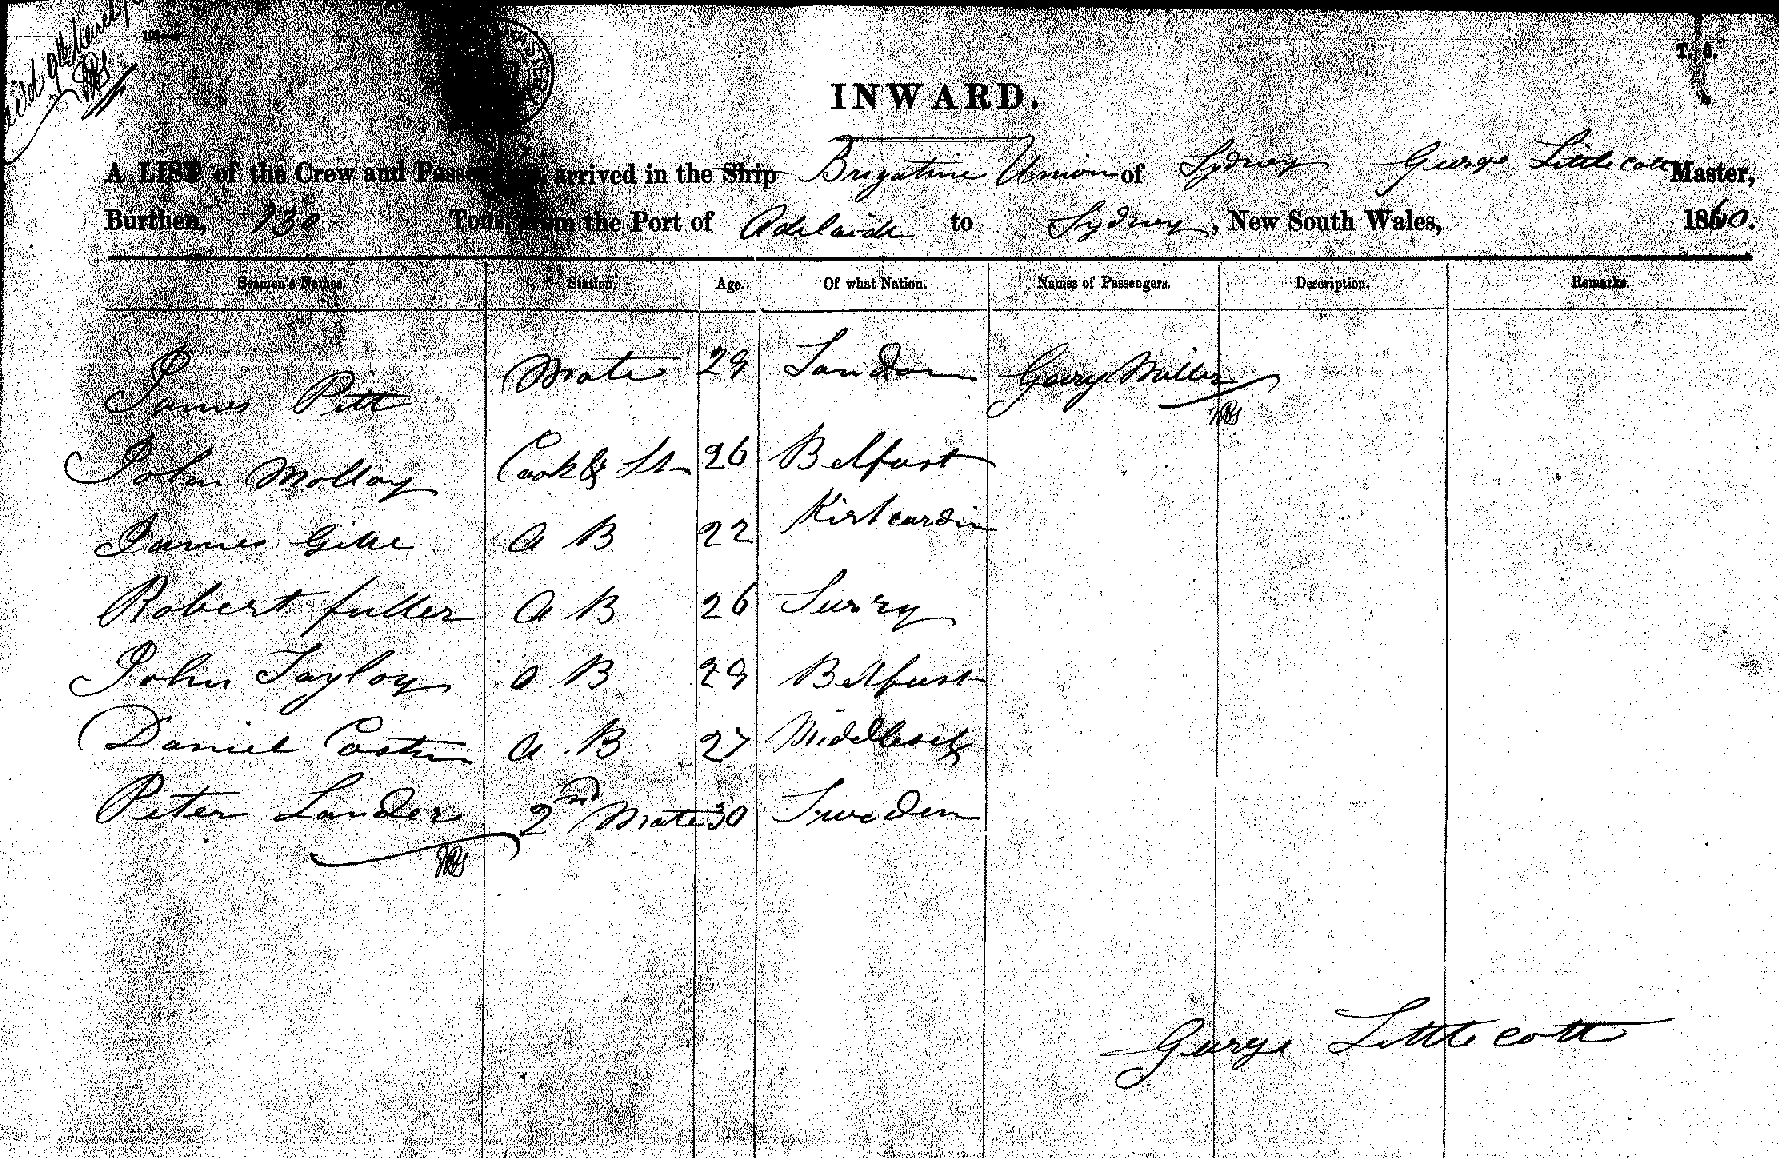 T. 5.
INWARD.
A LIST of the Crew and Passengers arrived in the Ship Brigatine Union of Sydney George Littlecott Master,
Burthen, 130 Tons, from the Port of Adelaide to Sydney, New South Wales, 1860.
Seamen's Names. Station. Age. Of what Nation. Names of Passengers. Description. Remarks.
James Pitt Mate 29 London Miller
John Molloy Cook & St 26 Belfast
James A B 22 Kirtcardin
Robert fuller A B 26 Surry
John Tayloy A B 29 Belfast
Daniel A B 27
Peter Lander 2nd Mate 30 Sweden
George Littlecott